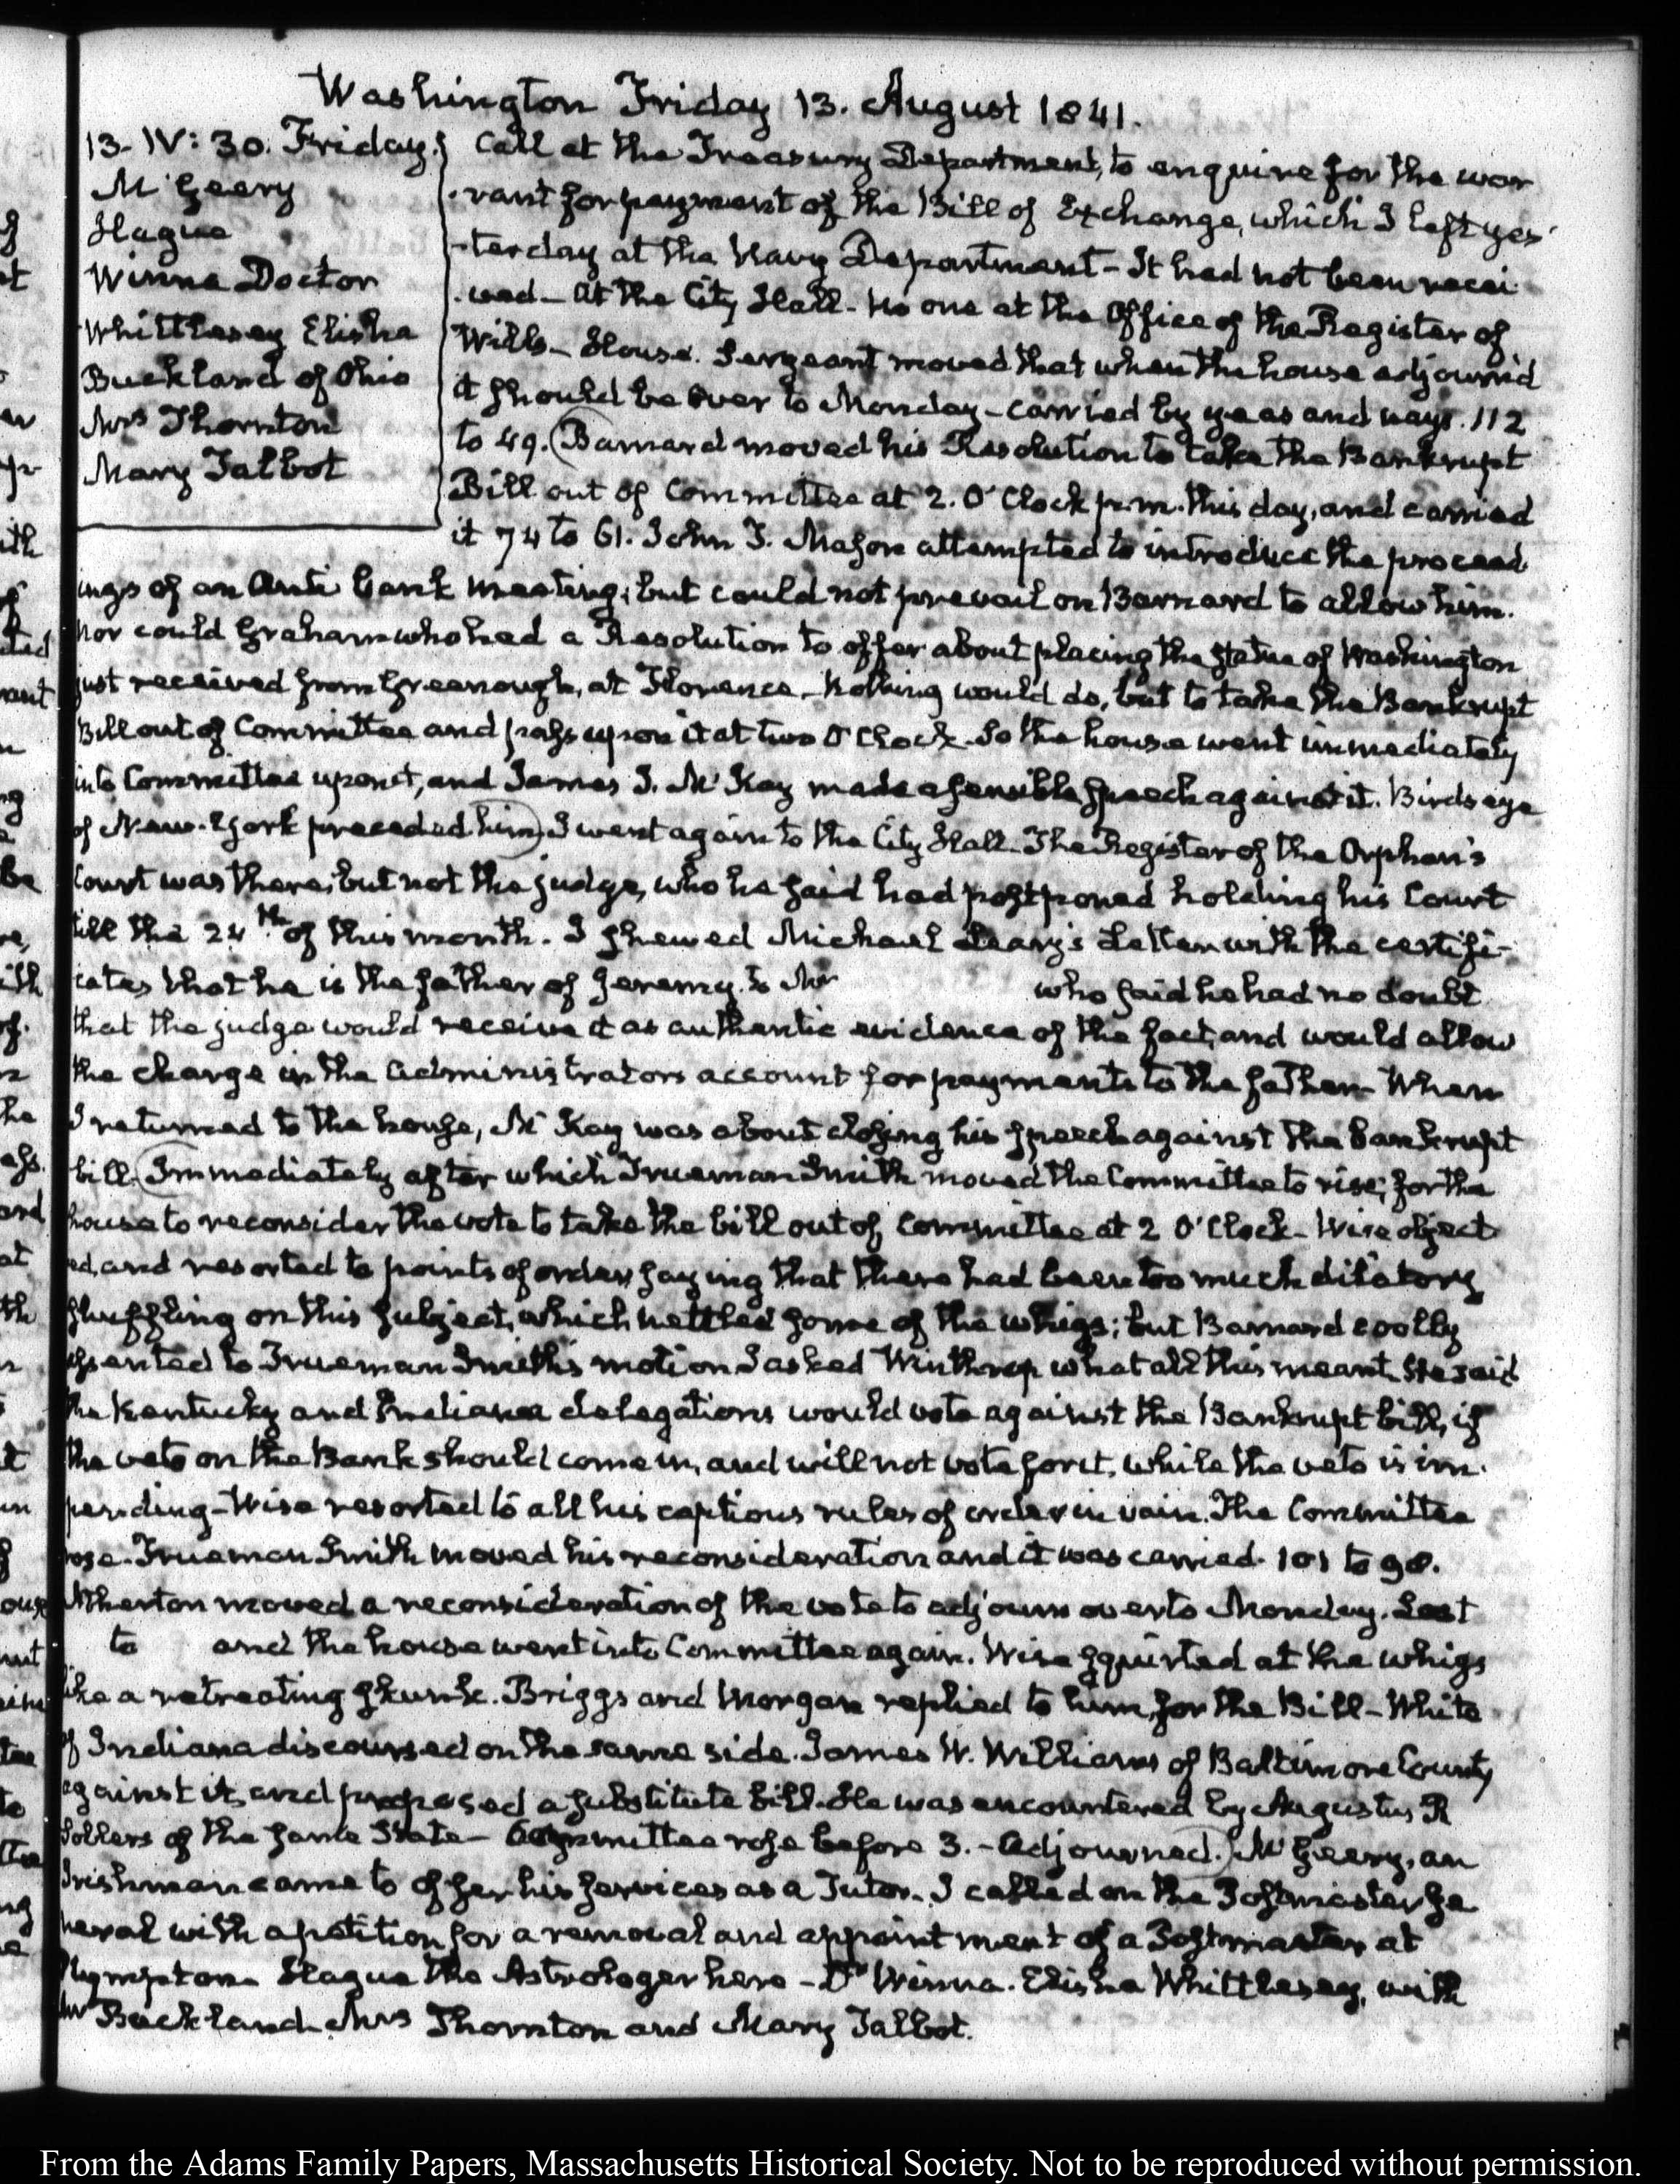 Washington Friday 13. August 1841.
13. IV: 30. Friday.
Mc Geery
Hague
Winna Doctor
Whittlesey Elisha
Buckland of Ohio
Mrs Thornton
Mary Talbot
Call at the Treasury Department, to enquire for the war
rant for payment of the Bill of Exchange, which I left yes
terday at the Navy Department - It had not been recei
ved - At the City Hall - no one at the Office of the Register of
Wills - House. Sergeant moved that when the house adjourn'd
it should be over to Monday - carried by yeas and nays. 112
to 49. Barnard moved his Resolution to take the Bankrupt
Bill out of Committee at 2. O'Clock p.m. this day, and carried
it 74 to 61. John T. Mason attempted to introduce the proceed
ings of an Anti bank meeting; but could not prevail on Barnard to allow him.
nor could Graham who had a Resolution to offer about placing the Statue of Washington
just received from Greenough, at Florence - Nothing would do, but to take the Bankrupt
Bill out of Committee and pass upon it at two O'Clock. So the house went immediately
into Committee upon it, and James J. Mc Kay made a sensible speech against it. Birdseye
of New-York preceded him I went again to the City Hall. The Register of the Orphan's
Court was there, but not the judge, who he said had postponed holding his Court
till the 24th of this month. I shewed Michael Leary's Letter with the certifi
cates that he is the father of Jeremy. to Mr who said he had no doubt
that the judge would receive it as authentic evidence of the fact, and would allow
the charge in the Administrators account for payments to the father - When
I returned to the house, Mc Kay was about closing his speech against the bankrupt
bill. Immediately after which Trueman Smith moved the Committee to rise, for the
house to reconsider the vote to take the bill out of Committee at 2 O'Clock - Wise object
ed, and resorted to points of order, saying that there had been too much dilatory
shuffling on this subject, which nettled some of the whigs; but Barnard coolly
assented to Trueman Smith's motion I asked Winthrop what all this meant. He said
the Kentucky and Indiana delegations would vote against the Bankrupt bill, if
the veto on the Bank should come in, and will not vote for it, while the veto is im
pending - Wise resorted to all his captious rules of order in vain. The Committee
rose. Trueman Smith moved his reconsideration and it was carried. 101 to 98.
Atherton moved a reconsideration of the vote to adjourn over to Monday. Lost
to and the house went into Committee again. Wise squirted at the whigs
like a retreating skunk. Briggs and Morgan replied to him, for the Bill - White
of Indiana discoursed on the same side. James W. Williams of Baltimore County
against it, and proposed a substitute bill. He was encountered by Augustus R
Sollers of the same State - Committee rose before 3. - Adjourned. Mc Geery, an
Irishman came to offer his services as a Tutor. I called on the Postmaster Ge
neral with a petition for a removal and appointment of a Postmaster at
Plympton. Hague the Astrologer here - Dr Winna. Elisha Whittlesey, with
Mr Buckland. Mrs Thornton and Mary Talbot.
From the Adams Family Papers, Massachusetts Historical Society. Not to be reproduced without permission.